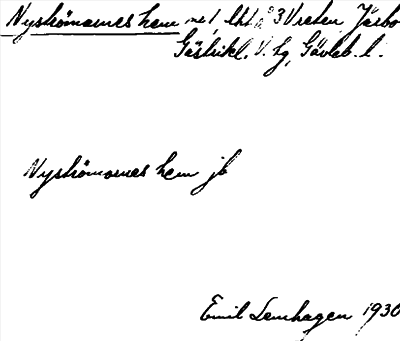 Nyströmarnes hem nr 1 lht å 3 Vreten Järbo
Gästrikl. V. tg, Gävleb. l.
Nyströmarnes hem jb
Emil Lenhagen 1930